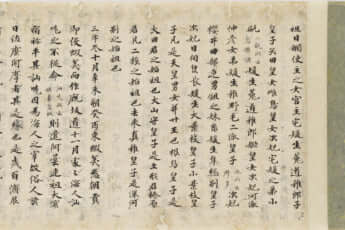 祖日觸使主之女宮主宅媛生菟道稚郎子
皇子矢田皇女雌鳥皇女次妃宅媛之弟小
甂媛生菟道稚郎姬皇女次妃河派
仲彥女弟媛生稚野毛二派皇子次妃
櫻井田部連男鉏之妹糸媛生隼総別皇子
次妃日向泉長媛生大葉枝皇子小葉枝皇
子凡是天皇男女并廿王也根鳥皇子是
大田君之始祖也大山守皇子是土形君榛原
君凡二族之始祖也去来真稚皇子是深河
別之始祖也
三年冬十月辛未朔癸酉東蝦夷悉朝貢
即役蝦夷而作厩坂道十一月處々海人訕
哤之不従命則遣阿曇連祖大濱
宿祢平其訕哤因為海人之宰故俗人諺
曰佐麼阿摩者其是縁也是歳百濟辰